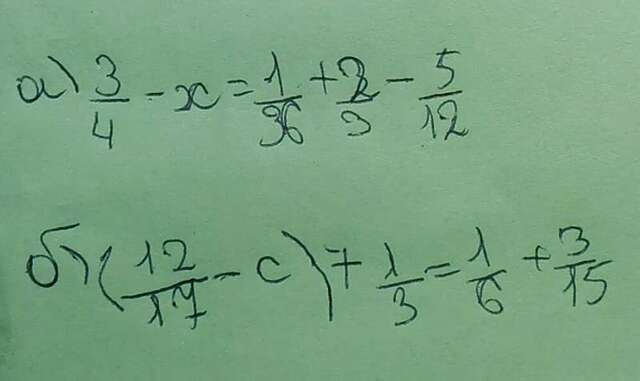 а) 3/4 - x = 1/36 + 2/3 - 5/12
б) (12/17 - c) + 1/3 = 1/6 + 3/15